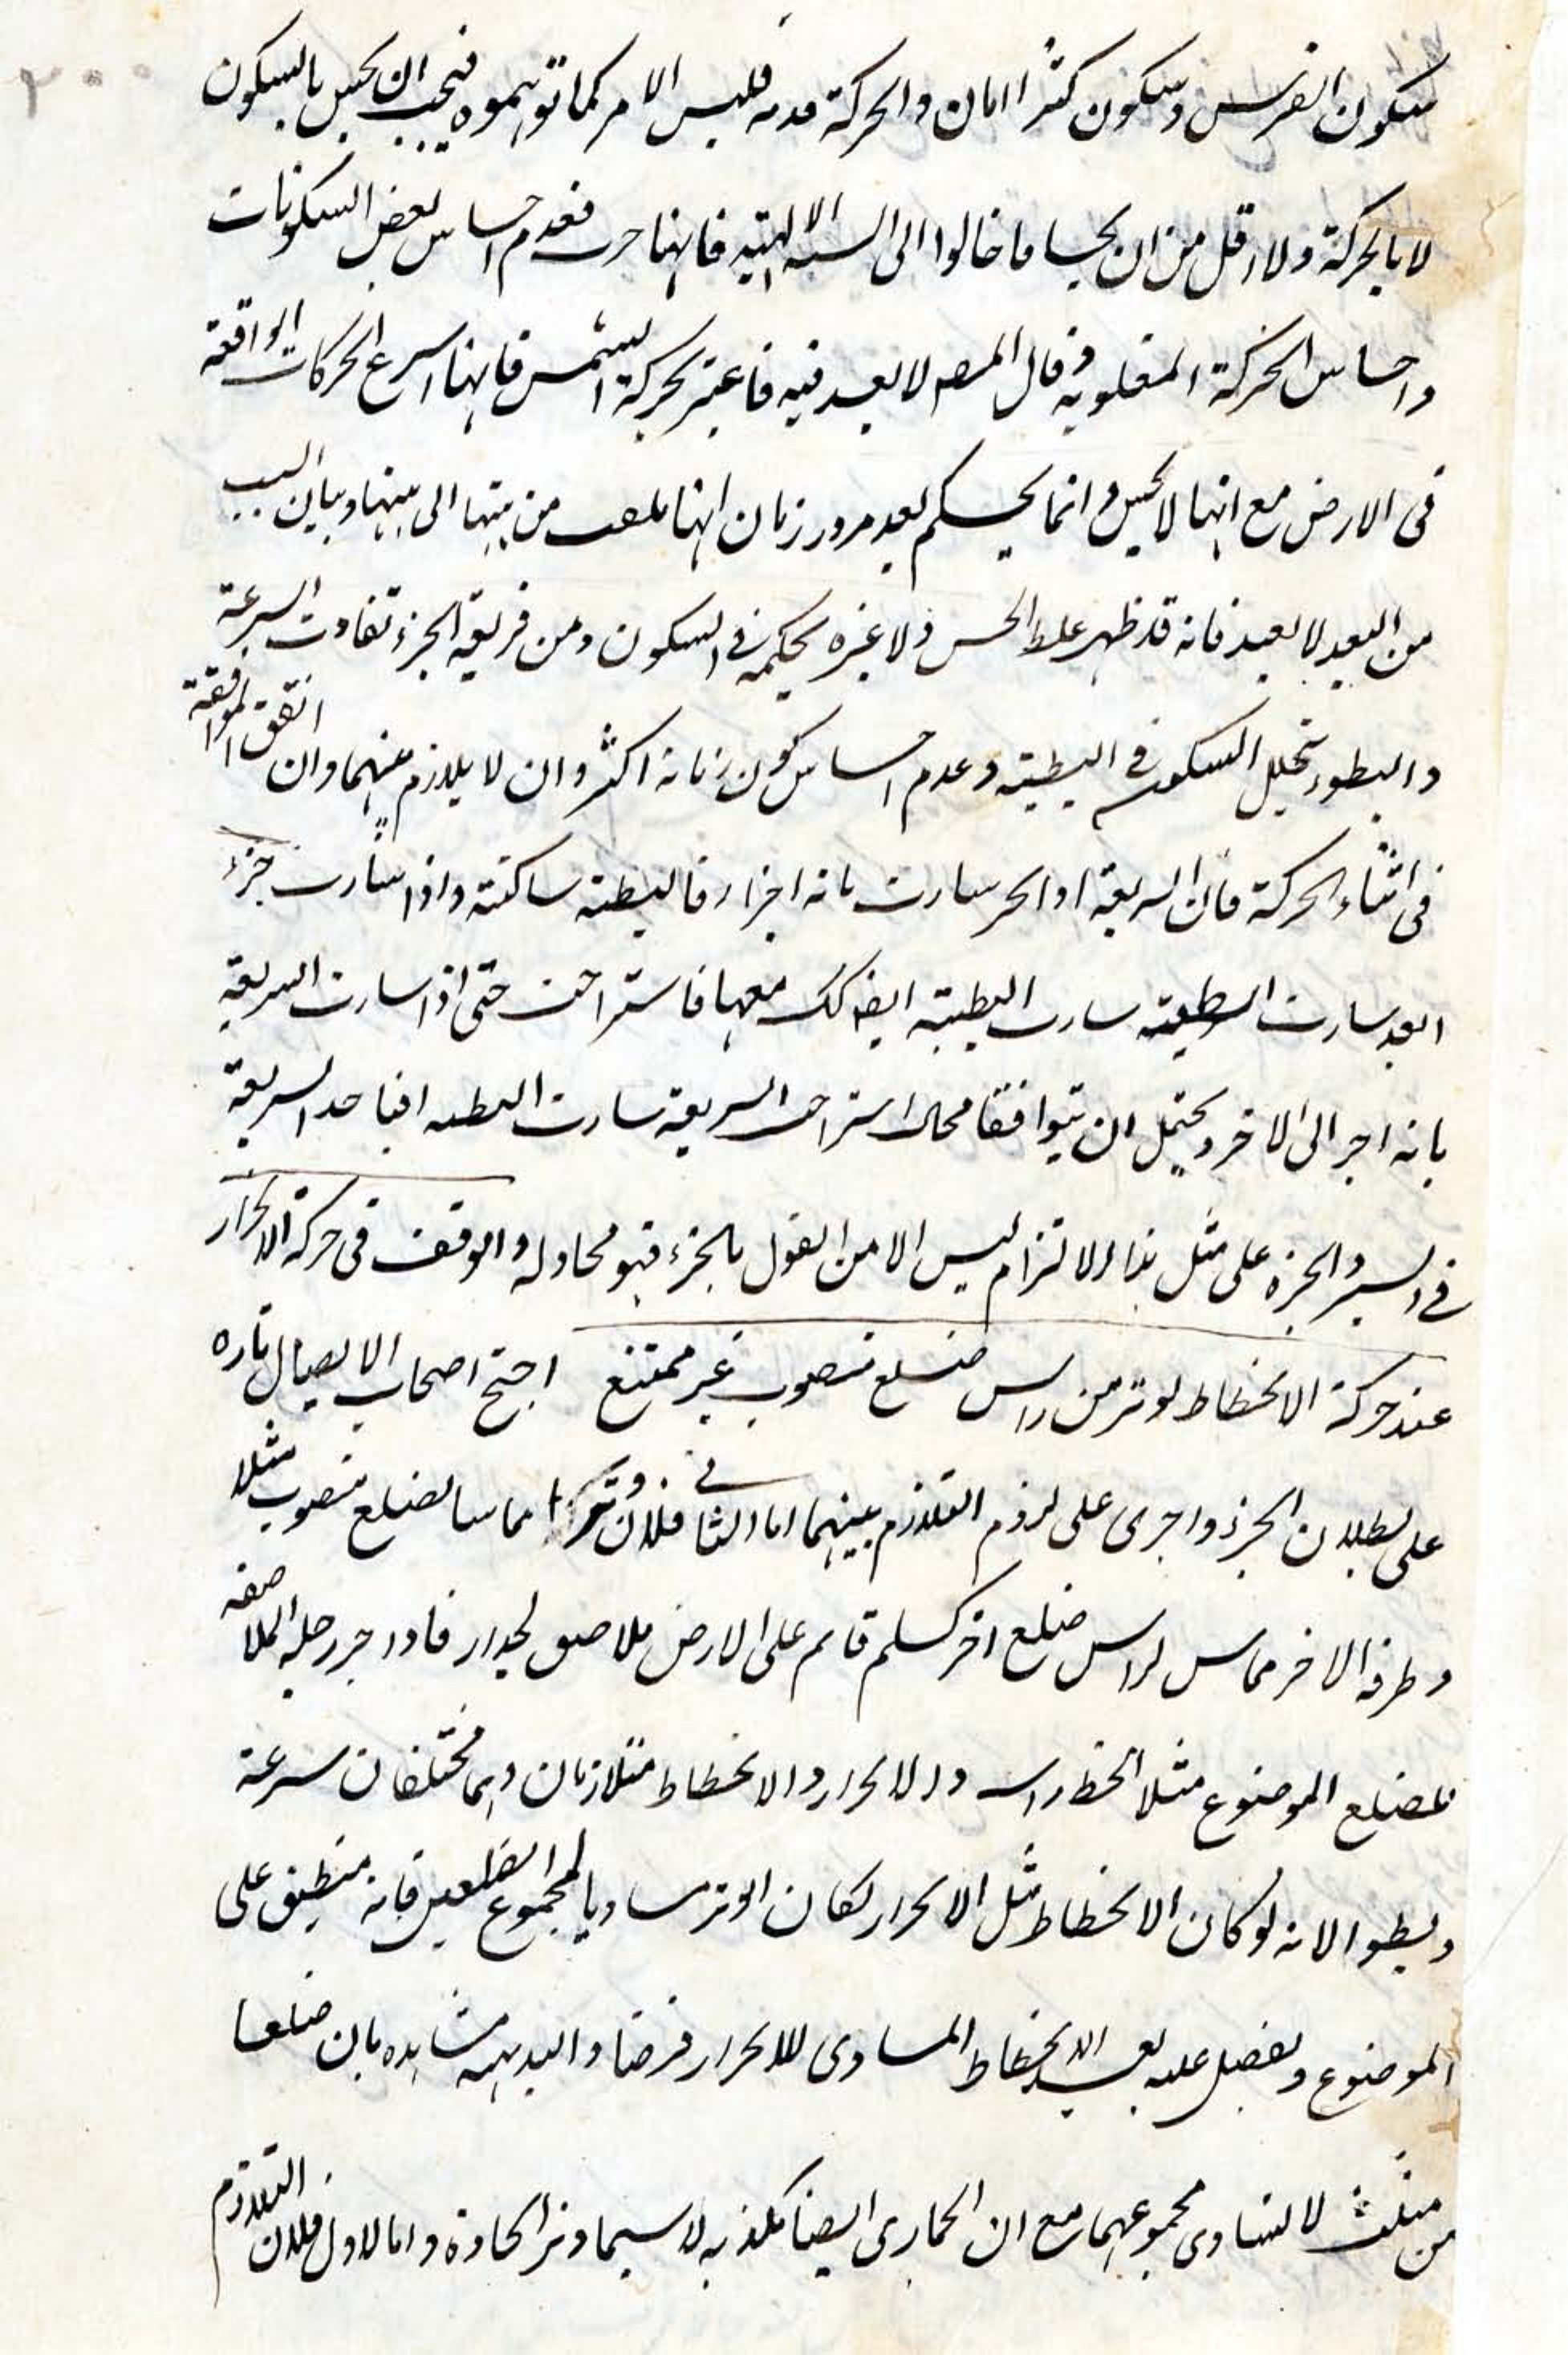 ٢٠٠
سكون الفرس وسكون كثرا امان والحركة فليس الامر كما توهموه فيجب ان يحس بالسكون
لا بالحركة ولا اقل من ان يحسا ما خالوا الى الالهية فانها فعدم احساس بعض السكونات
واحساس الحركة المغلوبة وقال المصـ لا بعد فيه فاعتبر بحركة الشمس فانها اسرع الحركات الواقعة
فى الارض مع انها لا يحس وانما يحكم بعد مرور زمان انها من بيتها الى بيتها وبيان السبب
من البعيد لا يعيد فانه قد ظهر غلط الحس ولا غيره يحكمه فى السكون ومن فريقه الجزء تفاوت السرعة
والبطوء بتخلل السكون فى البطيئة وعدم احساس كون زمانه اكثر وان لا يلازم بينهما وان اتفق الموافقة
فى اثناء الحركة فان السريعة سارت اجزاء فالبطيئة ساكنة واذا سارت جزء
سارت سارت البطيئة ايضـ كك معها فاستراحت حتى اذا سارت السريعة
الى الاخر ويحتمل ان يتوافقا استراحت السريعة سارت السريعة
فى السير والجزء على مثل هذا الالتزام ليس الا من القول بالجزء فهو محاوله والوقف فى حركة الانجرار
عند حركة الانحطاط لوتر من راس ضلع منصوب غير ممتنع احتج اصحاب الاتصال تاره
على بطلان الجزء واخرى على لزوم التلازم بينهما اما الثانى فلان وترا مماسا لضلع منصوب مثلا
وطرفه الاخر مماس لراس ضلع اخر كسلم قائم على الارض ملاصق لجدار فاذا جر رجله الملاصقه
للضلع الموضوع مثلا انحط راسه والانجرار والانحطاط متلازمان وهما مختلفان سرعة
وبطوءا لانه لو كان الانحطاط مثل الانجرار لكان الوتر مساويا لمجموع الضلعين فانه منطبق على
الموضوع ويفضل عليه بعد الانحطاط المساوى للانجرار فرضا والبديهه مشاهده بان ضلعا
من مثلث لا يساوى مجموعهما مع ان الحمارى ايضا يكذبه لا سيما وتر الحادة واما الاول فلان التلازم